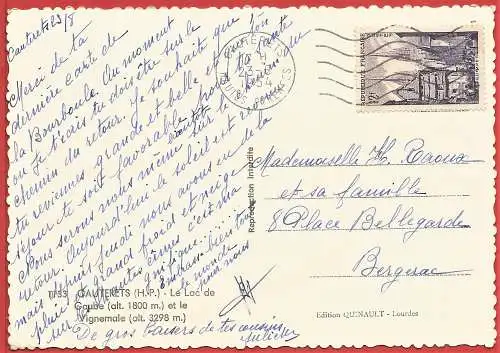 Cauterets 23/8
Merci de ta
dernière carte de
la Bourboule. Au moment
où je t'écris tu dois être sur le
chemin du retour. Je souhaite que ton
tu reviennes grande et belle et que ton
séjour te soit favorable pour
Nous serons nous même sur le
retour. Aujourd'hui le soleil est revenu
mais jeudi nous avons eu de la
pluie grand froid et neige
sur les hautes cimes c'est ma
tout
le monde
pour nous
De gros baisers de tes cousins
CAUTERETS
HTES PYRENEES
REPUBLIQUE FRANÇAISE
POSTES
Mademoiselle H. Raoux
et sa famille
8 Place Bellegarde
Bergerac
Reproduction Interdite
CAUTERETS (H.-P.) - Le Lac de
Gaube (alt. 1800 m.) et le
Vignemale (alt. 3298 m.)
Edition QUENAULT - Lourdes